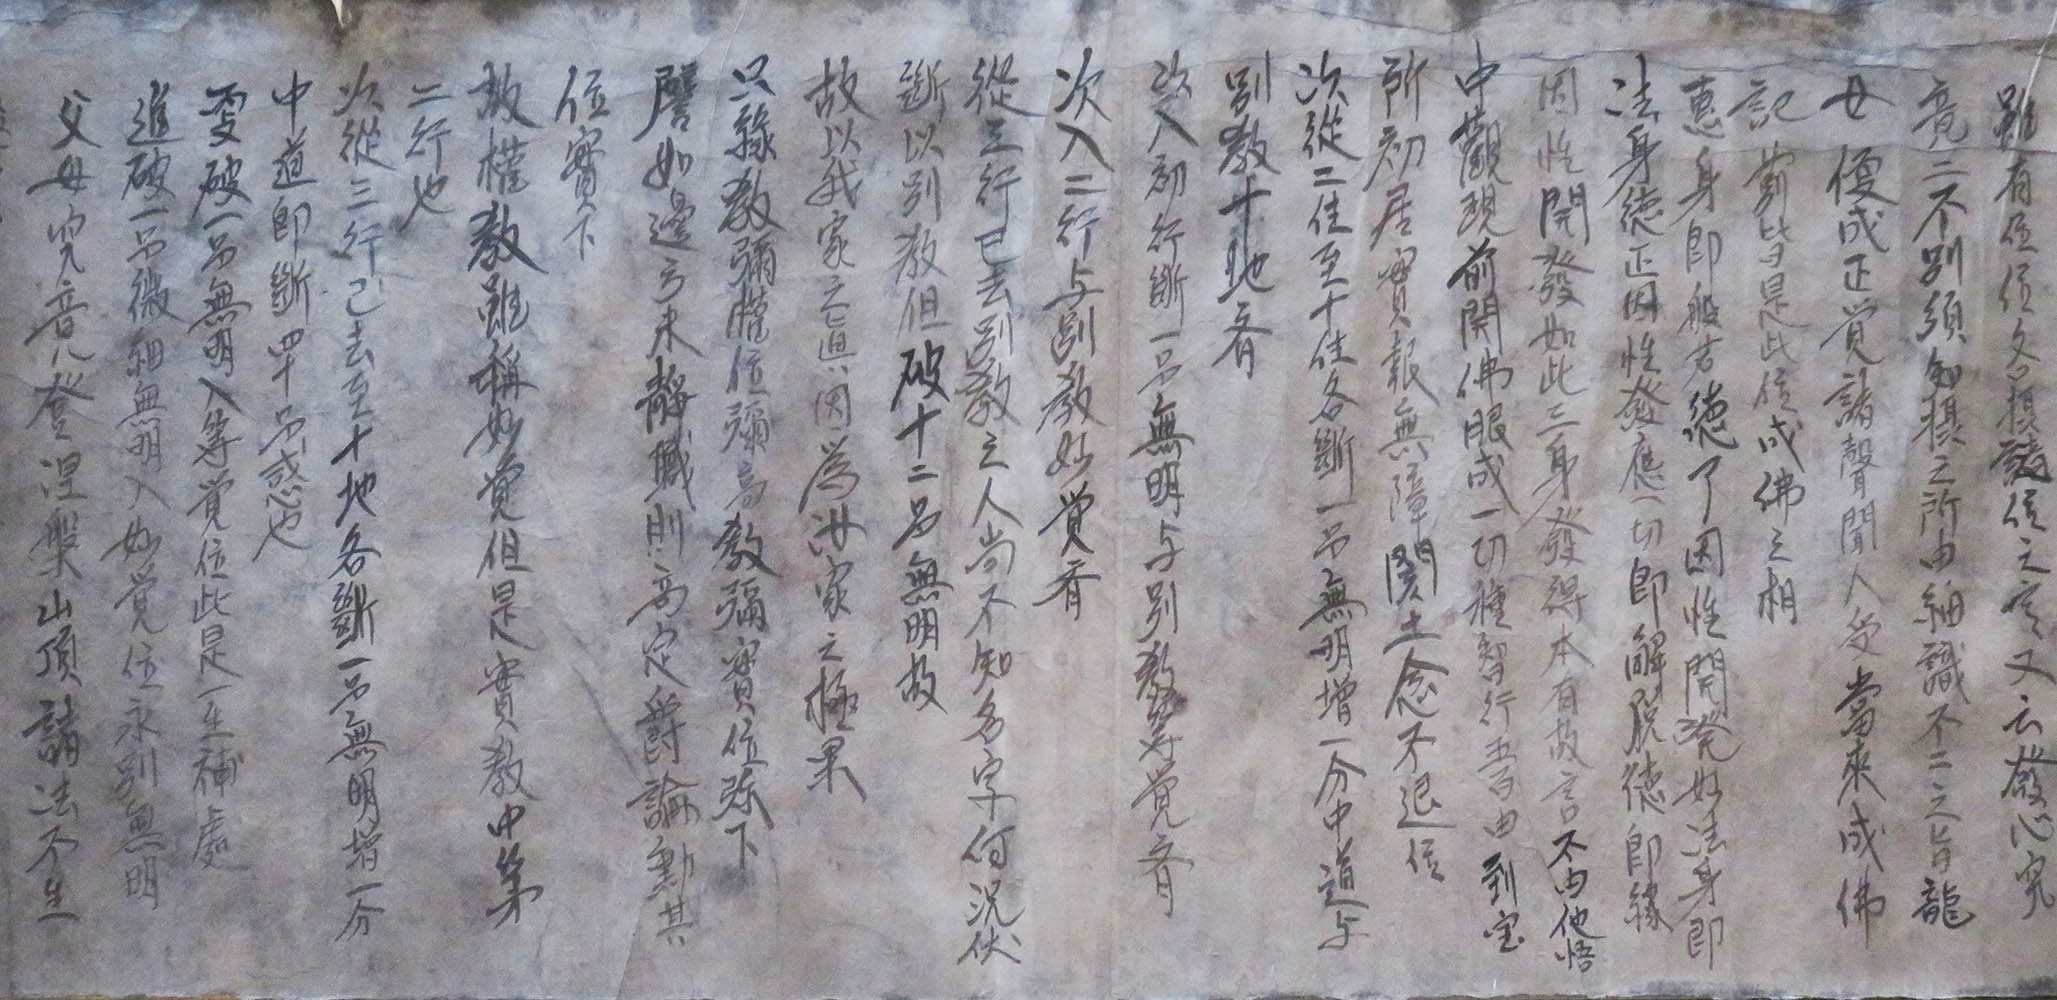 雖有位位文損諸位之实又云發心究
竟二不別須知損之所由細識不二之旨龍
女便成正覚諸聲聞人受當來成佛
記莂皆是此位成佛之相
惠身即般若德了因性開発妙法身即
法身徳正因性發應一切即解脱徳即縁
因性開發如此三身發得本有故言不由他悟
中觀現前開佛眼成一切種智行五百由到宝
所初居實報無障閡土念不退位
次從二住至十住各斷一品無明增一分中道与
別教十地斉
次入初行斷一品無明与別教等覚斉
次入二行与別教妙覚斉
從三行已去別教之人尚不知名字何況伏
斷以別教但破十二品無明故
故以我家之真因為汝家之極果
只縁教彌權位彌高教彌實位弥下
譬如邊方未靜職則高定爵論勳其
位實下
故權教雖稱妙覚但是實教中第
二行也
次從三行已去至十地各斷一品無明增一分
中道即斷四十品惑也
更破一品無明入等覚位此是一生補處
進破一品微細無明入妙覚位永別無明
父母究竟登涅槃山頂諸法不生